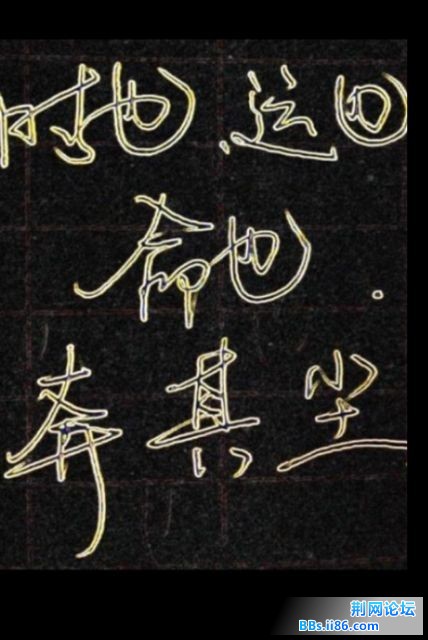 时也.运也
命也.
奔其尘
荆网论坛
BBs.ii86.com